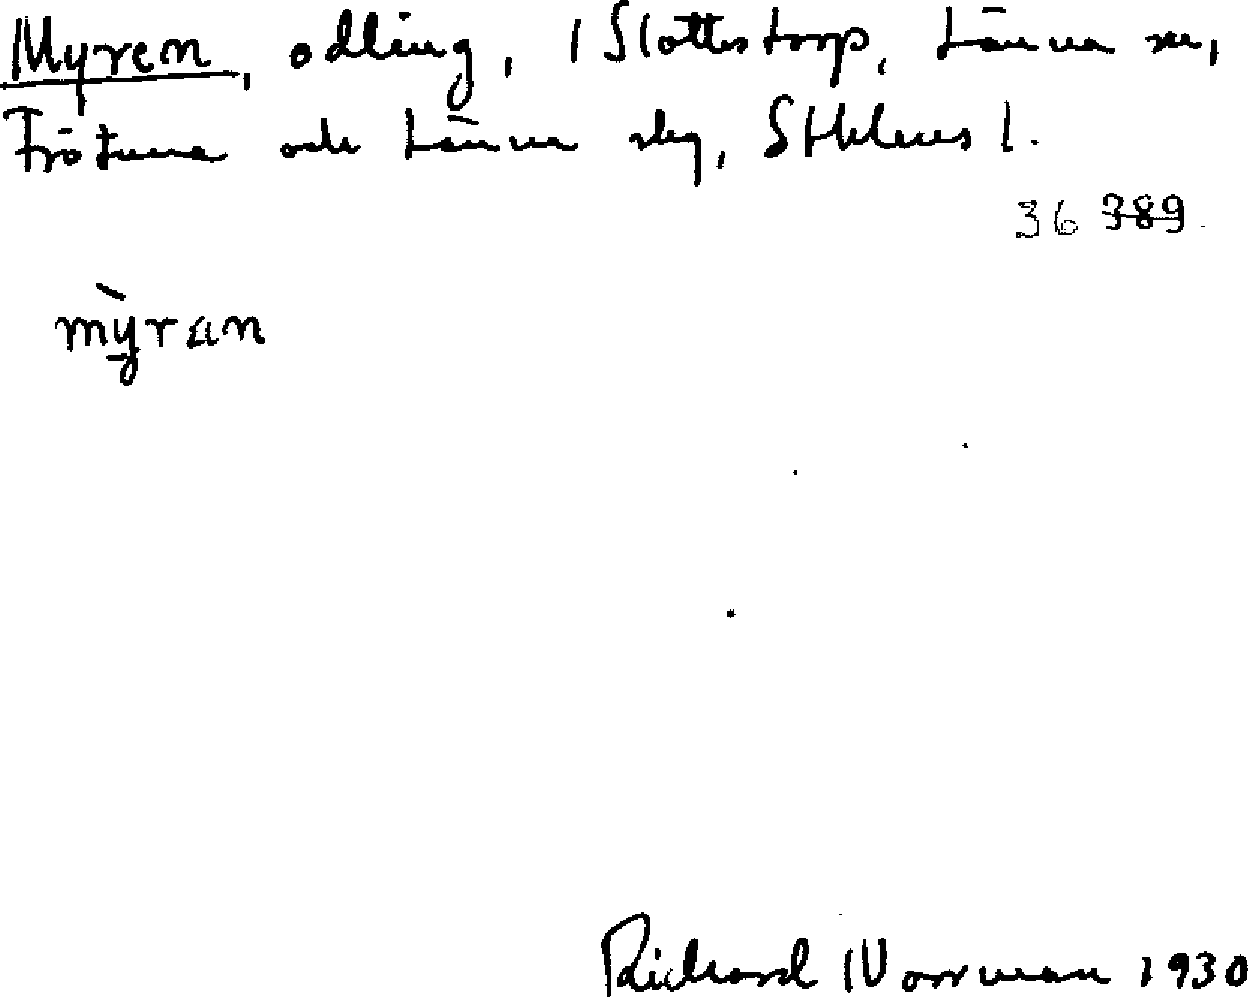 Myren, odling, 1 Slottstorp, Länna sn,
Frötuna och Länna skg, Sthlms l.
36 389
mỳran
Richard Norrman 1930